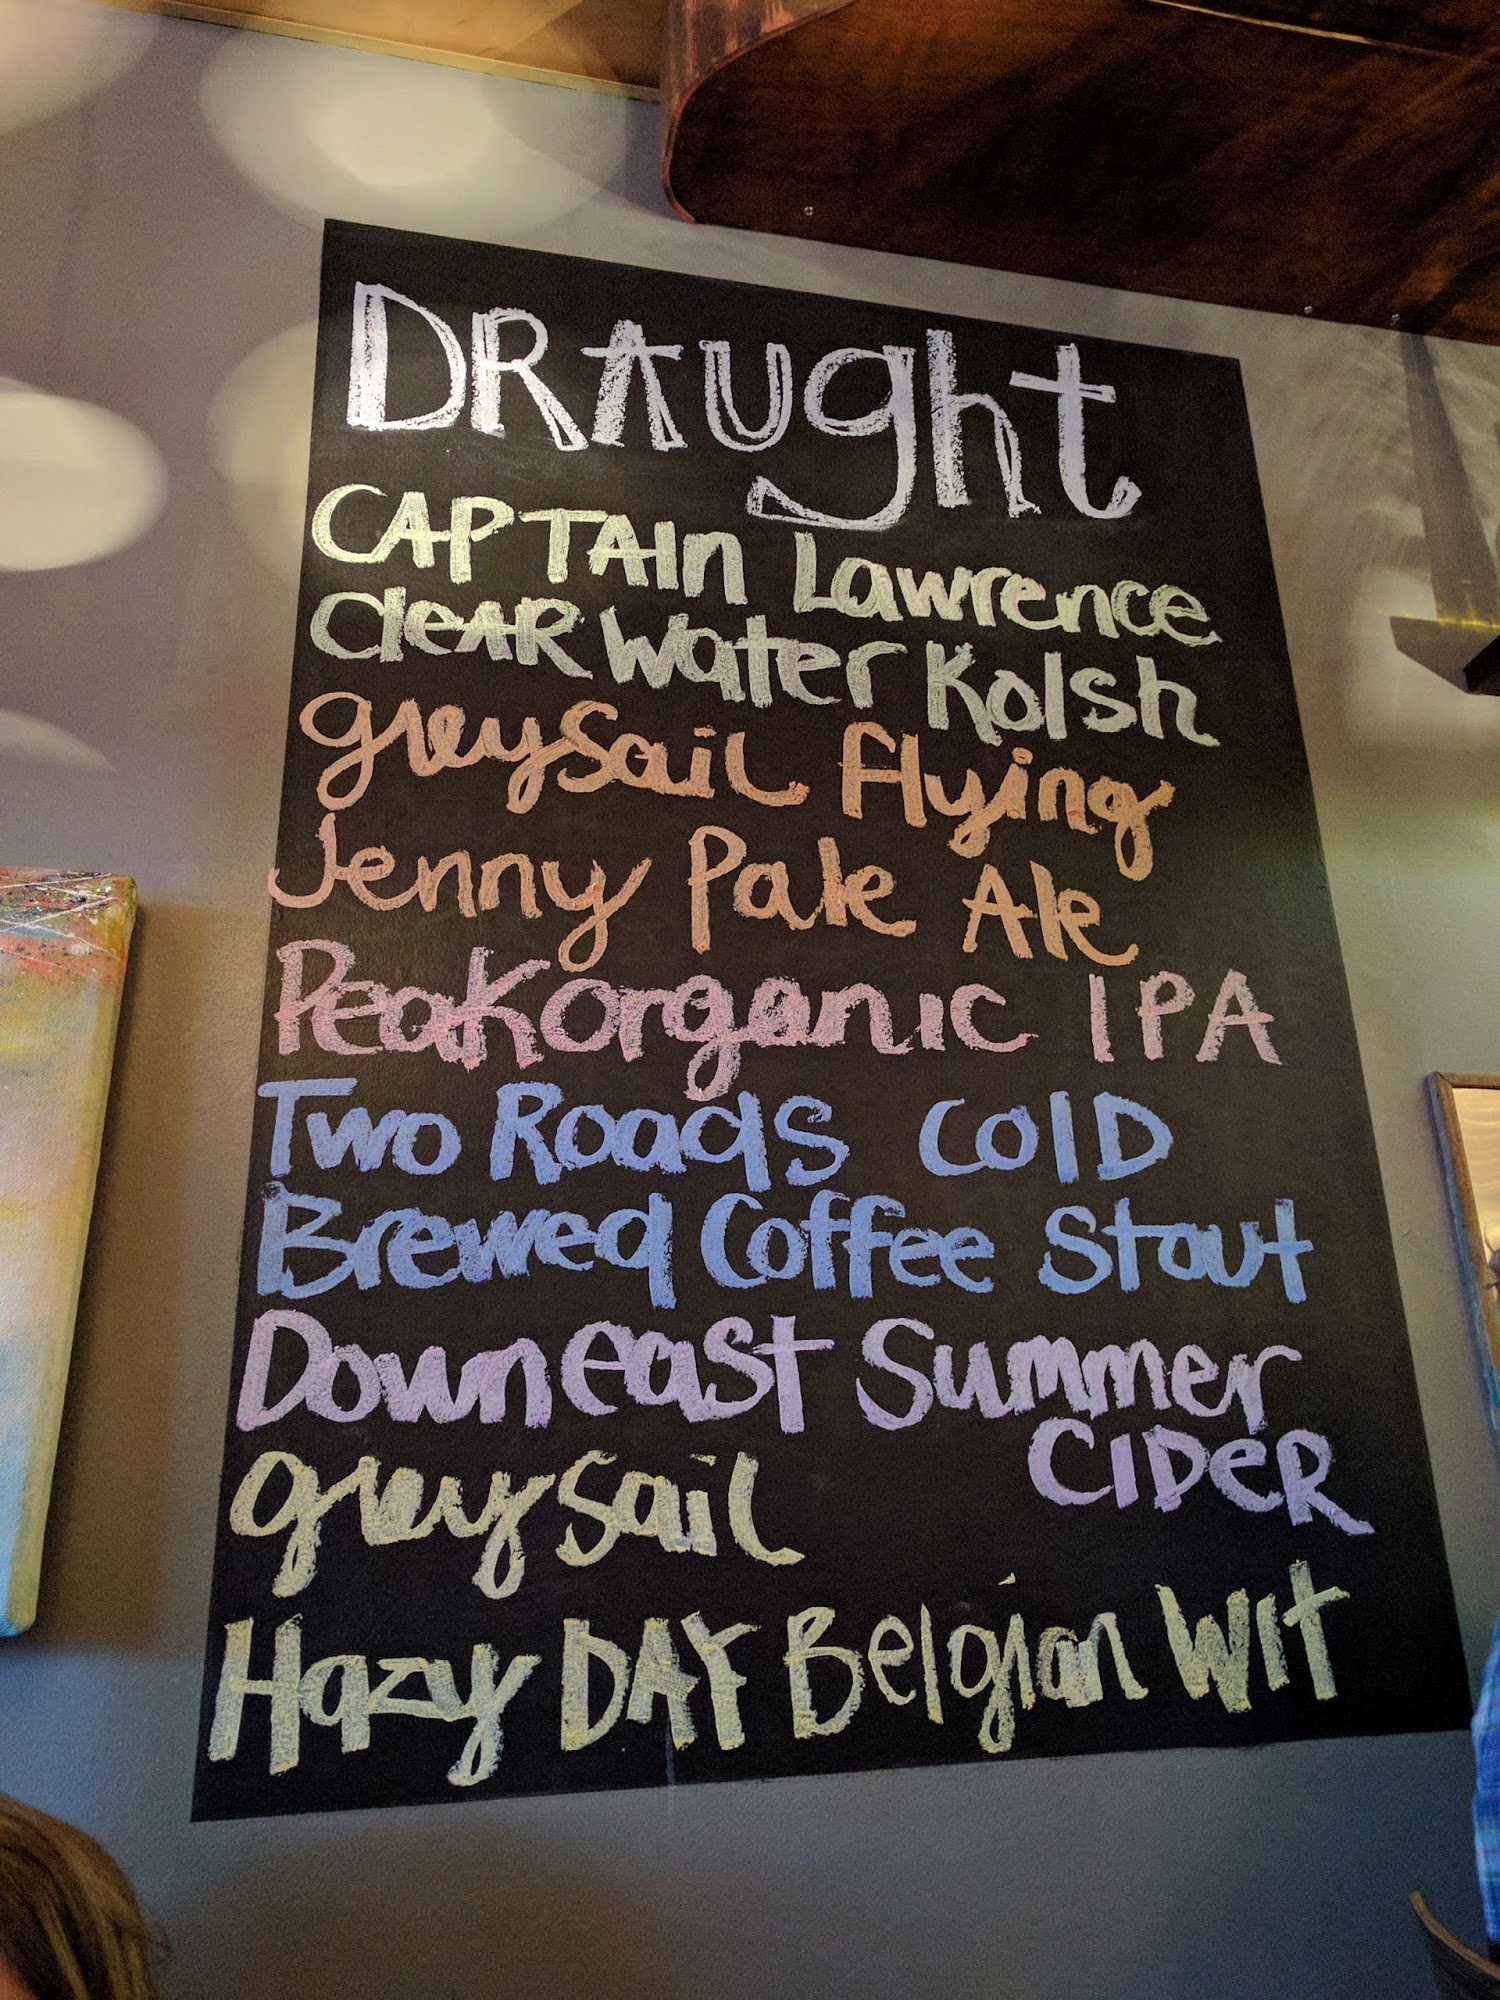 DRAught
CAPTAIn Lawrence
CleAR Water Kolsh
greysail flying
Jenny Pale Ale
Peakorganic IPA
Two Roads ColD
Brewed Coffee Stout
Downeast Summer
CIDeR
greysail
Hazy DAY Belgian Wit